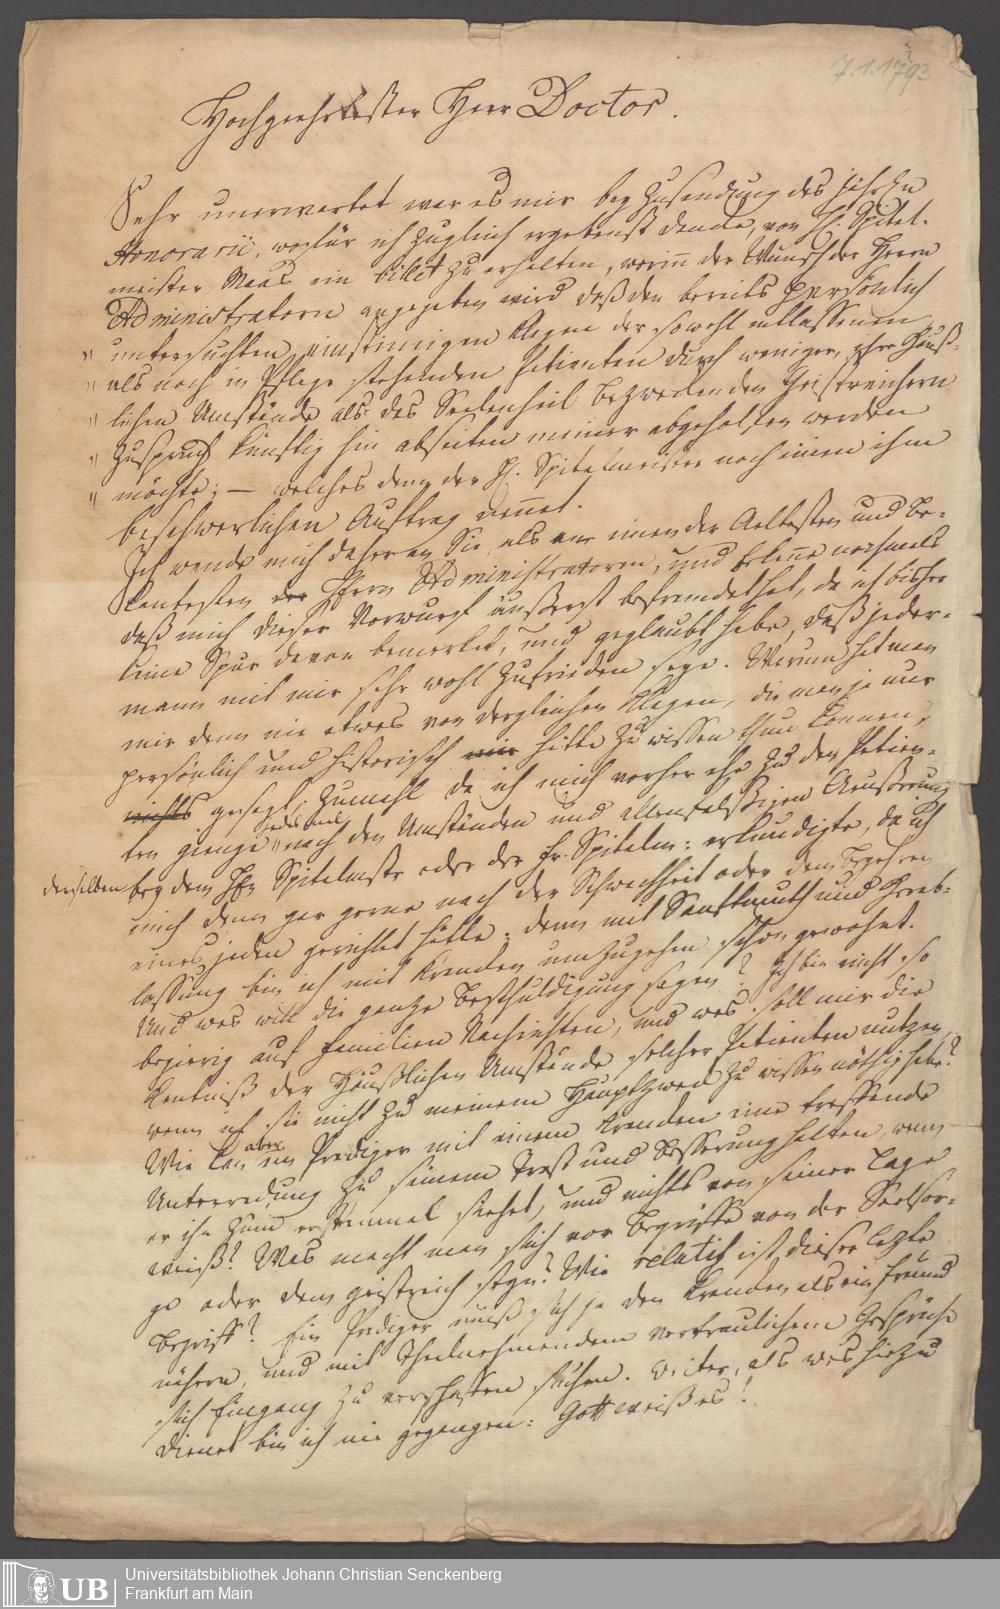 7.1.1793
Hochgeehrtester Herr Doctor.
Sehr unerwartet war es mir bey Zusendung des jährln
Honorarii, wofür ich zugleich ergebenst danke, von H. Spital-
meister Maas ein billet zu erhalten, worin der Wunsch der Herrn
Administratorn angegeben wird daß den bereits persönlich
" untersuchten, einstimigen Klagen der sowohl entlassenen
" als noch in Pflege stehenden Patienten durch weniger, ihre häuß-
" lichen Umstände als des Seelenheil bezweckenden Geistreichern
" Zuspruch künftig hin abseiten meiner abgeholfen werden
" möchte; — welches denn der H. Spitalmeister noch einen ihm
beschwerlichen Auftrag nennet.
Ich wende mich daher an Sie, als an einen der Aeltesten und Be-
kantesten der Hherrn Administratorn, und bekenne nochmals
daß mich dieser Vorwurf äußerst befremdet hat, da ich bisher
keine Spur davon bemerket, und geglaubt habe, daß jeder-
mann mit mir sehr wohl zufrieden seye. Warum hat man
mir denn nie etwas von dergleichen Klagen, die man ja nur
persönlich und historisch mir hätte zu wissen thun können,
nichts gesagt; zumahl da ich mich vorher ehe zu den Patien-
ten gienge jedesmal nach den Umständen und allenfalsigen Aeußerung
derselben bey dem Hhn Spitalmstr oder der Fr. Spitalm: erkundigte, da ich
mich denn gar gerne nach der Schwachheit oder dem Begehren
eines jeden gerichtet hätte; denn mit Sanftmuth und Herab-
lassung bin ich mit Kranken umzugehen schon gewohnt.
Und was will die ganze Beschuldigung sagen? Ich bin nicht so
begierig auf Familien Nachrichten, und was soll mir die
Kentniß der häußlichen Umstände solcher Patienten nutzen,
wenn ich sie nicht zu meinem Hauptzweck zu wissen nöthig habe?
Wie kan aber ein Prediger mit einem Kranken eine treffende
Unterredung zu seinem Trost und Besserung halten, wenn
er ihn zum erstenmal siehet, und nichts von seiner Lage
weiß? Was macht man sich vor Begriffe von der Seelsor-
ge oder dem geistreich seyn? Wie relatif ist dieser lezte
Begriff? Ein Prediger muß sich ja den Kranken als ein Freund
nähern, und mit theilnehmendem vertraulichem Gespräche
sich Eingang zu verschaffen suchen. Weiter, als was hiezu
dienet bin ich nie gegangen: Gott weiß es!
UB
Universitätsbibliothek Johann Christian Senckenberg
Frankfurt am Main